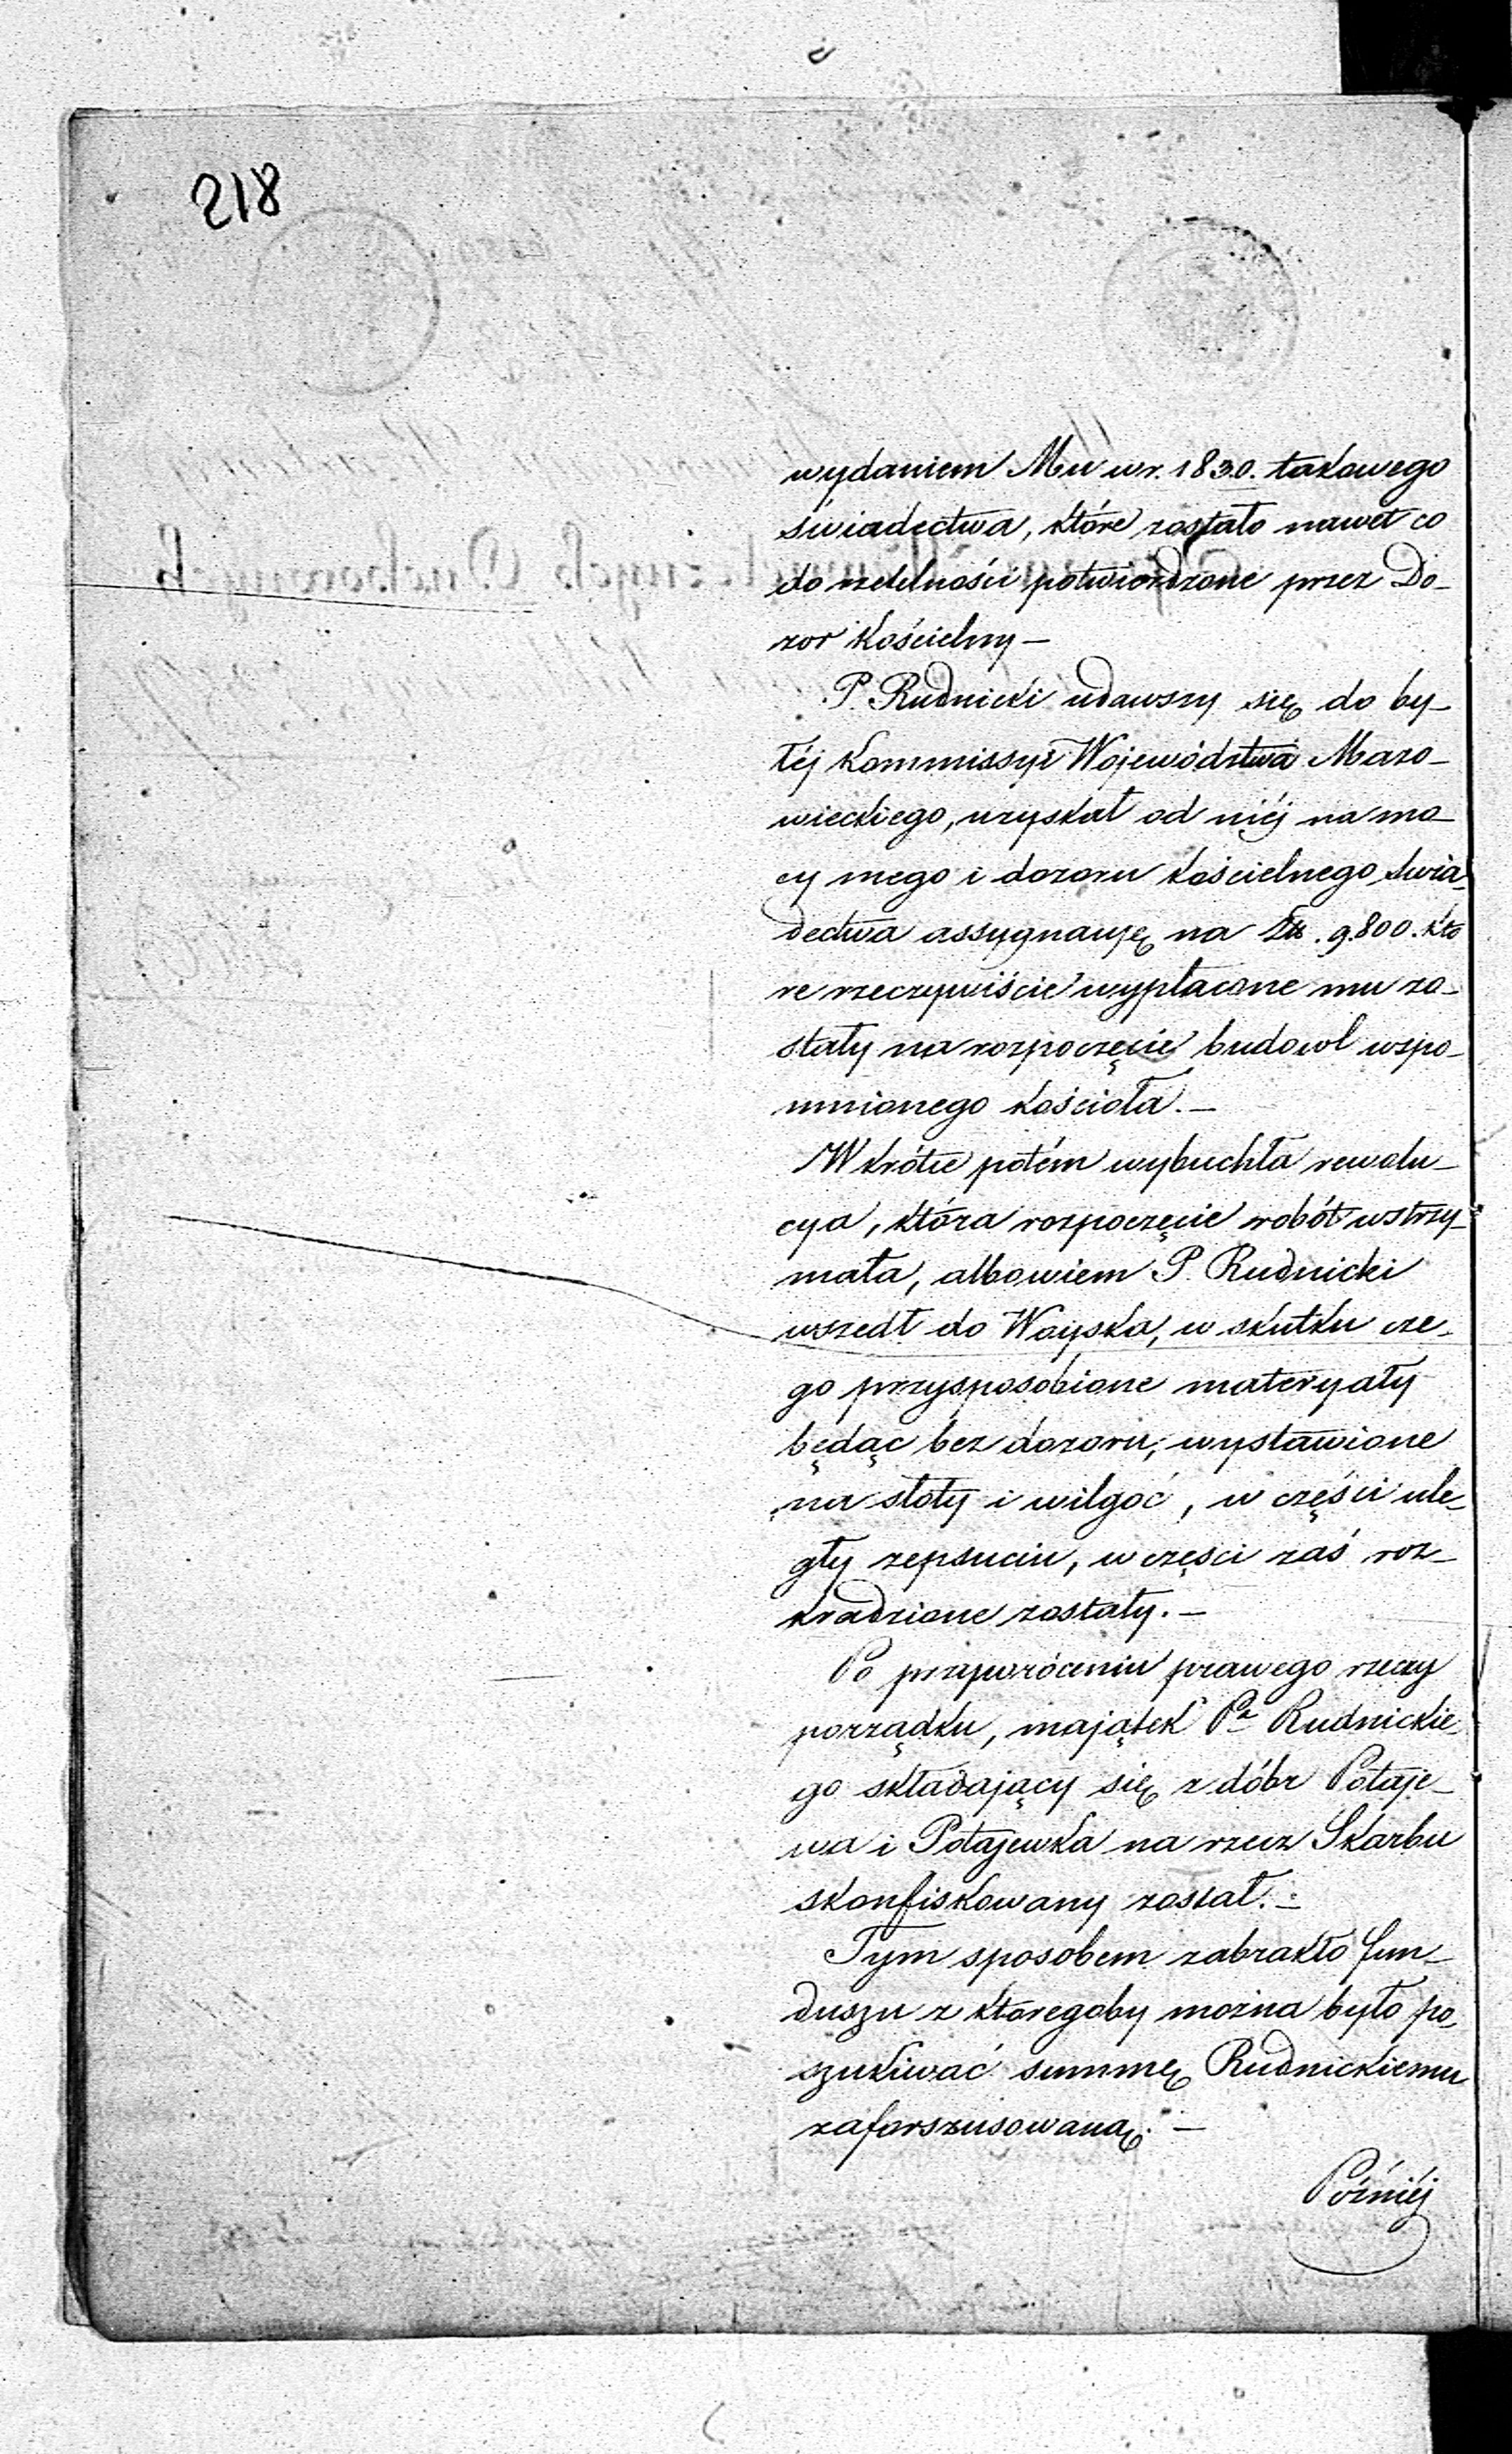 218
wydaniem Mu w r. 1830. takowego
świadectwa, które zostało nawet co
do rzetelności potwierdzone przez Do-
zor Kościelny —
P. Rudnicki udawszy się do by-
łéj Kommissyi Województwa Mazo-
wieckiego, uzyskał od niéj na mo-
cy mego i dozoru Kościelnego świa-
dectwa assygnacyę na Zł. 9.800. któ
re rzeczywiście wypłacone mu zo-
stały na rozpoczęcie budowl wspo-
mnionego Kościoła. —
W krótce potém wybuchła rewolu-
cya, która rozpoczęcie robót wstrzy-
mała, albowiem P. Rudnicki
wszedł do Woyska, w skutku cze-
go przysposobione materyały
będąc bez dozoru, wystawione
na słoty i wilgoć, w części ule-
gły zepsuciu, w części zaś roz-
kradzione zostały. —
Po przywróceniu prawego rzeczy
porządku, majątek Pa Rudnickie-
go składający się z dóbr Potaje-
wa i Potajewka na rzecz Skarbu
skonfiskowany został. —
Tym sposobem zabrakło fun-
duszu z któregoby można było po-
szukiwać summę Rudnickiemu
zaforszusowaną. —
Późniéj